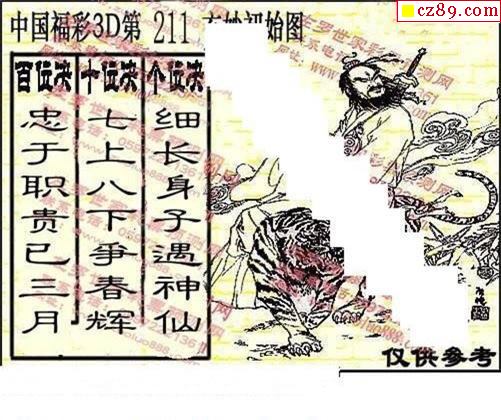 cz89.com
中国福彩3D第 211 始图
百位决
忠于职贵已三月
十位决
七上八下爭春辉
个位决
细长身子遇神仙
仅供参考